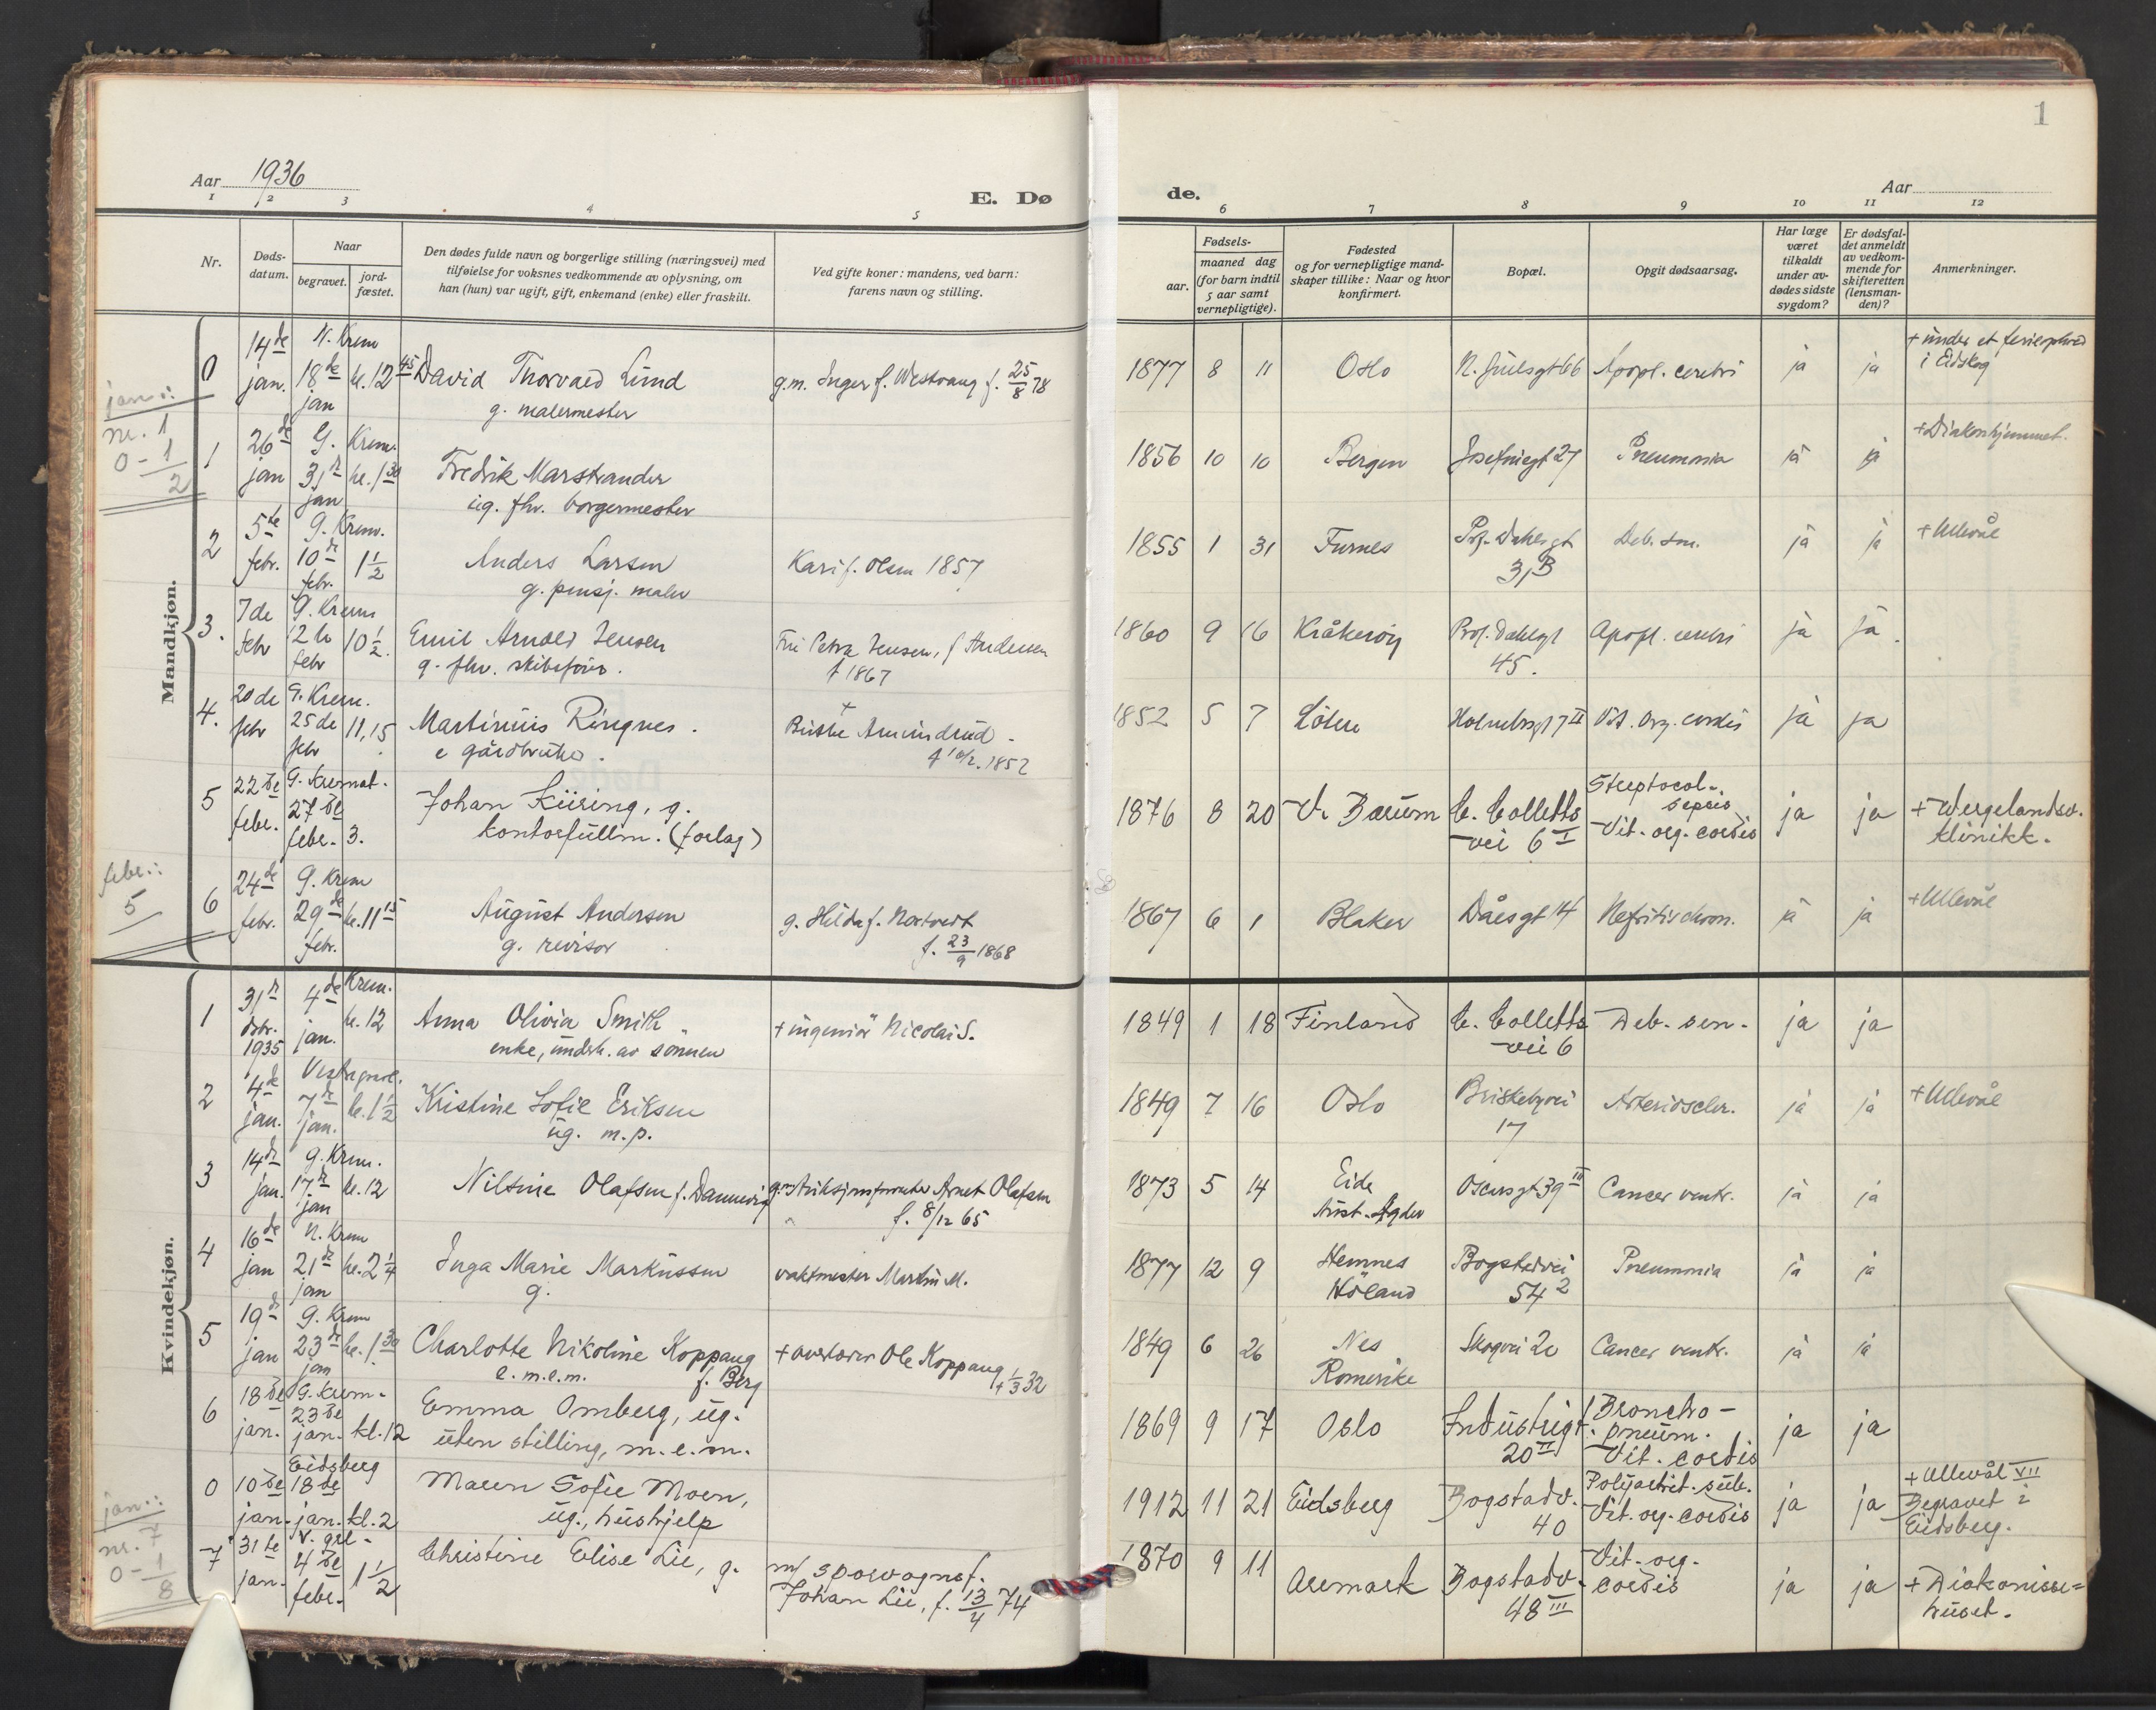 1
Aar 1936
E. Dø
de.
Aar
1 2 3 4 5 6 7 8 9 10 11 12
Nr.
Døds-
datum.
Naar
begravet.
jord-
fæstet.
Den dødes fulde navn og borgerlige stilling (næringsvei) med
tilføielse for voksnes vedkommende av oplysning, om
han (hun) var ugift, gift, enkemand (enke) eller fraskilt.
Ved gifte koner: mandens, ved barn:
farens navn og stilling.
Fødsels-
aar.
maaned dag
(for barn indtil
5 aar samt
vernepligtige).
Fødested
og for vernepligtige mand-
skaper tillike: Naar og hvor
konfirmert.
Bopæl.
Opgit dødsaarsag.
Har læge
været
tilkaldt
under av-
dødes sidste
sygdom?
Er dødsfal-
det anmeldt
av vedkom-
mende for
skifteretten
(lensman-
den)?
Anmerkninger.
Mandkjøn.
jan.:
nr. 1
0 - 1
2
0 14de jan. N. Krem 18de jan kl. 12 45
David Thorvald Lund
g. malermester
g.m. Inger f. Westvang f. 25/8 78
1877 8 11 Oslo N. Juelsgt 66 Apopl. cerebri ja ja
+ under et
i Eidskog
1 26de jan G. Krem. 31te jan kl. 1 30
Fredrik Marstrander
ug. fhv. borgermester
1856 10 10 Bergen Josefinegt 27 Pneumonia ja ja
+ Diakonhjemmet.
2 5te febr. G. Krem. 10de febr. 1 1/2
Anders Larsen
g. pensj. maler
Kari f. Olsen 1857
1855 1 31 Furnes Prf. Dahls gt
31B
Deb. sen. ja ja + Ullevål
3. 7de febr G. Krem 12te febr 10 1/2.
Emil Arnold Jensen
g. fhv. skibsfører.
Fru Petra Jensen, f Andersen
f 1867
1860 9 16 Kråkerøy Prof. Dahlsgt
45.
Apopl. cerebri ja ja.
4. 20de febr G. Krem. 25de febr 11,15
Martinius Ringnes.
e gårdbruker.
1852
1852 5 7 Löten Holmboesgt 7 II Vit. org. cordis ja ja
5 22de febr. G. Kremat. 27de febr. 3.
Johan Küsing, g.
kontorfullm. (forlag)
1876 8 20 V. Bærum C. Colletts
vei 6 I
Streptocok.
sepsis
Vit. org. cordis
ja ja + Wergelandsv.
klinikk.
febr.:
5
6 24de febr. G. Krem 29de febr. kl. 11 15
August Andersen
g. revisor
g. Hilda f. Nortvedt
f. 23/9 1868
1867 6 1 Blaker Dåesgt 14 Nefritis chron. ja ja + Ullevål
Kvindekjøn.
1 31te dsbr. 1935 4de jan. Krem. kl. 12
Anna Olivia Smith
enke, underh. av sønnen
+ ingeniör Nicolai S.
1849 1 18 Finland C. Colletts
vei 6
Deb. sen. ja ja
2 4de jan. Vestre gravl. 7de jan. kl. 1 1/2
Kristine Sofie Eriksen
ug. m.p.
1849 7 16 Oslo Briskebyvei
17
Arterioscler. ja ja + Ullevål
3 14de jan. G. Krem. 17de jan kl. 12
Nilsine Olafsen f. Dannevig
g.m. Auksjonsforvalter Arnet Olafsen
f. 8/12 65
1873 5 14 Eide
Aust-Agder
Oscarsgt 39 III Cancer ventr. ja ja
4 16de jan N. Krem 21de jan kl. 2 1/4
Inga Marie Markussen
g.
vaktmester Martin M.
1877 12 9 Hemnes
Höland
Bogstadvei
54 2
Pneumonia ja ja
5 19de jan G. Krem 23de jan kl. 1 30
Charlotte Nikoline Koppang
e. m.e.m. f. Berg
+ Ole Koppang
+ 1/3 32
1849 6 26 Nes
Romerike
Skogvei 20 Cancer ventr. ja ja
6 18de jan. G. Krem. 23de jan. kl. 12
Emma Omberg, ug.
uten stilling, m.e.m.
1869 9 17 Oslo Industrigt.
20 II
Broncho-
pneum.
Vit. cordis
ja ja
jan.:
nr. 7
0 - 1
8
0 10de jan. Eidsberg 18de jan. kl. 2
Maren Sofie Moen,
ug., hushjelp
1912 11 21 Eidsberg Bogstadv.
40
Polyartrit. sub.
Vit. org. cordis
ja ja + Ullevål VII
Begravet i
Eidsberg.
7 31te jan. V. grl. 4de febr. 1 1/2
Christine Elise Lie, g.
m/ sporvognsf.
Johan Lie, f. 13/4 74
1870 9 11 Aremark Bogstadv.
48 III
Vit. org.
cordis
ja ja + Diakonisse=
huset.